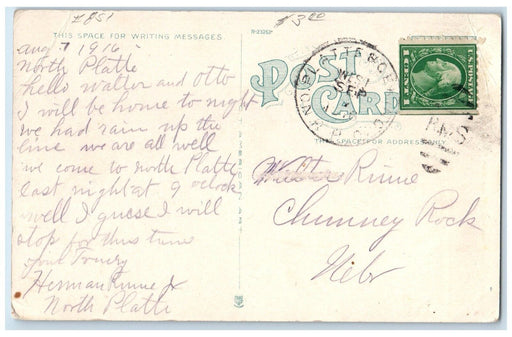 #851
$3.00
THIS SPACE FOR WRITING MESSAGES.
R-23212
POST CARD
THIS SPACE FOR ADDRESS ONLY.
aug 7 1916
North Platte
hello walter and Otto
I will be home to night
we had rain up the
line we are all well
we come to north Platte
last night at 9 oclock
well I guese I will
stop for thus time
your
Herman Rinne Jr
North Platte
WEST
SEP
R.M.S.
U.S. POSTAGE
Rinne
Chumney Rock
Nebr